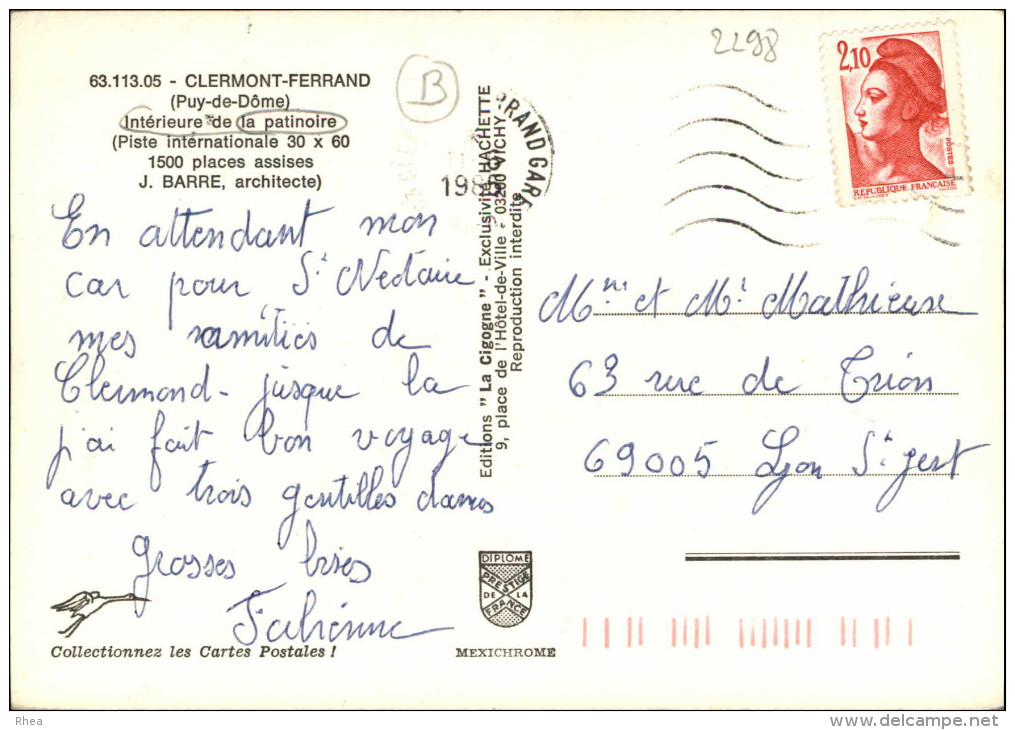 2298
63.113.05 - CLERMONT-FERRAND
(Puy-de-Dôme)
Intérieure de la patinoire
(Piste internationale 30 x 60
1500 places assises
J. BARRE, architecte)
B
RRAND GARE
198
2,10
POSTES
RÉPUBLIQUE FRANÇAISE
En attendant mon
car pour St Nectaire
mes amitiés de
Clermond - jusque la
j'ai fait bon voyage
avec trois gentilles dames
grosses bises
Fabienne
Editions "La Cigogne" - Exclusivité HACHETTE
9, place de l'Hôtel-de-Ville - 03200 VICHY
Reproduction interdite
Mme et Mr Mathieuse
63 rue de Trion
69005 Lyon St jest
DIPLOME
PRESTIGE
DE LA
FRANCE
Collectionnez les Cartes Postales !
MEXICHROME
Rhea
delcampe.net